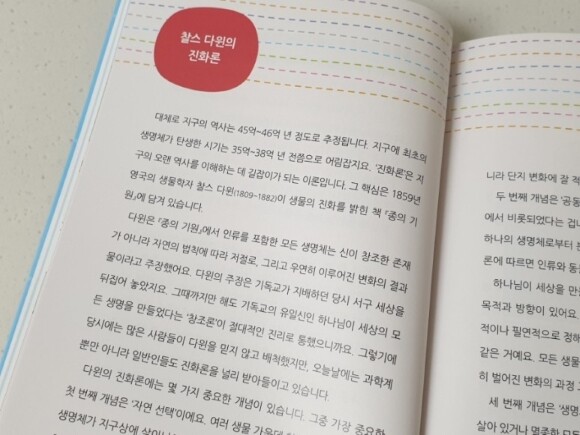 찰스 다윈의
진화론
대체로 지구의 역사는 45억~46억 년 정도로 추정됩니다. 지구에 최초의
생명체가 탄생한 시기는 35억~38억 년 전쯤으로 어림잡지요. '진화론'은 지
구의 오랜 역사를 이해하는 데 길잡이가 되는 이론입니다. 그 핵심은 1859년
영국의 생물학자 찰스 다윈(1809~1882)이 생물의 진화를 밝힌 책 『종의 기
원』에 담겨 있습니다.
다윈은 『종의 기원』에서 인류를 포함한 모든 생명체는 신이 창조한 존재
가 아니라 자연의 법칙에 따라 저절로, 그리고 우연히 이루어진 변화의 결과
물이라고 주장했어요. 다윈의 주장은 기독교가 지배하던 당시 서구 세상을
뒤집어 놓았지요. 그때까지만 해도 기독교의 유일신인 하나님이 세상의 모
든 생명을 만들었다는 '창조론'이 절대적인 진리로 통했으니까요. 그렇기에
당시에는 많은 사람들이 다윈을 믿지 않고 배척했지만, 오늘날에는 과학계
뿐만 아니라 일반인들도 진화론을 널리 받아들이고 있습니다.
다윈의 진화론에는 몇 가지 중요한 개념이 있습니다. 그중 가장 중요한
첫 번째 개념은 '자연 선택'이에요. 여러 생물 가운데
생명체가 지구상에 살아
니라 단지 변화에 잘 적
두 번째 개념은 '공동
에서 비롯되었다는 겁니
하나의 생명체로부터 분
론에 따르면 인류와 동
하나님이 세상을 만들
목적과 방향이 있어요
적이나 필연적으로 정해
같은 거예요. 모든 생물
히 벌어진 변화의 과정
세 번째 개념은 '생명
살아 있거나 멸종한 모든